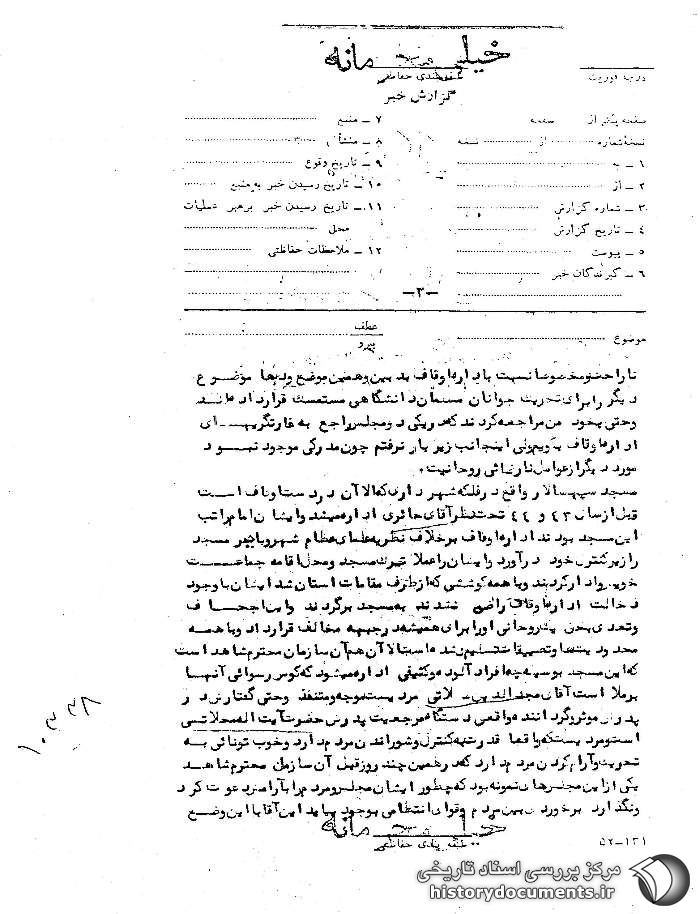 خیلی محرمانه
طبقه بندی حفاظتی
درجه فوریت
گزارش خبر
صفحه یکم از صفحه
نسخه شماره از نسخه
۱ ـ به
۲ ـ از
۳ ـ شماره گزارش
۴ ـ تاریخ گزارش
۵ ـ پیوست
۶ ـ گیرندگان خبر
۷ ـ منبع
۸ ـ منشأ
۹ ـ تاریخ وقوع
۱۰ ـ تاریخ رسیدن خبر به منبع
۱۱ ـ تاریخ رسیدن خبر برهبر عملیات
محل
۱۲ ـ ملاحظات حفاظتی
ـ۳ـ
موضوع
عطف
پیرو
ناراحتند مخصوصا نسبت باداره اوقاف بدبین و همین موضع وریها موضوع
دیگر را برای تحریک جوانان مسلمان دانشگاهی مستمسک قرار داده‌اند
وحتی بخود من مراجعه کردند که در یکی دو مجلس راجع به غارتگریهای
اداره اوقاف بگویم ولی اینجانب زیر بار نرفتم چون مدرکی موجود نبود
مورد دیگر از عوامل نارضائی روحانیت.
مسجد سپهسالار واقع در فلکه شهرداری که الان در دست اوقاف است
قبل از سال ۴۳ و ۴۴ تحت نظر آقای حائری اداره میشد وایشان امام راتب
این مسجد بودند اداره اوقاف برخلاف نظریه علمای عظام شهر وبا جبر مسجد
را زیر کنترل خود درآورد وایشان را عملا بترک مسجد ومحل اقامه جماعت
خویش وادار کردند وبا همه کوششی که از طرف مقامات استان شد ایشان با وجود
دخالت اداره اوقاف راضی نشدند به مسجد برگردند واین اجحاف
وتعدی بحق یک روحانی اورا برای همیشه در جبهه مخالف قرار داد وبا همه
محدودیتها وتضییقات تسلیم نشده است الان هم آن سازمان محترم شاهد است
که این مسجد بوسیله چه افراد آلوده وکثیفی اداره میشود که کوس رسوائی آنها
برملا است آقای مجدالدین محلاتی مردیست موجه ومتنفذ وحتی گفتارش در
پدرش موثر وگرداننده واقعی دستگاه مرجعیت پدرش حضرت آیت اله محلاتی
است ومردیست که واقعا قدرت به کنترل وشوراندن مردم دارد وخوب توانائی به
تحریک وآرام کردن مردم دارد که در همین چند روز قبل آن سازمان محترم شاهد
یکی از این مجلسهای نمونه بود که چطور ایشان مجلس ومردم را بآرامش دعوت کرد
ونگذارد برخوردی بین مردم وقوای انتظامی بوجود بیاید این آقا با این وضع
خیلی محرمانه
طبقه بندی حفاظتی
۵۲-۱۳۱
مرکز بررسی اسناد تاریخی
historydocuments.ir